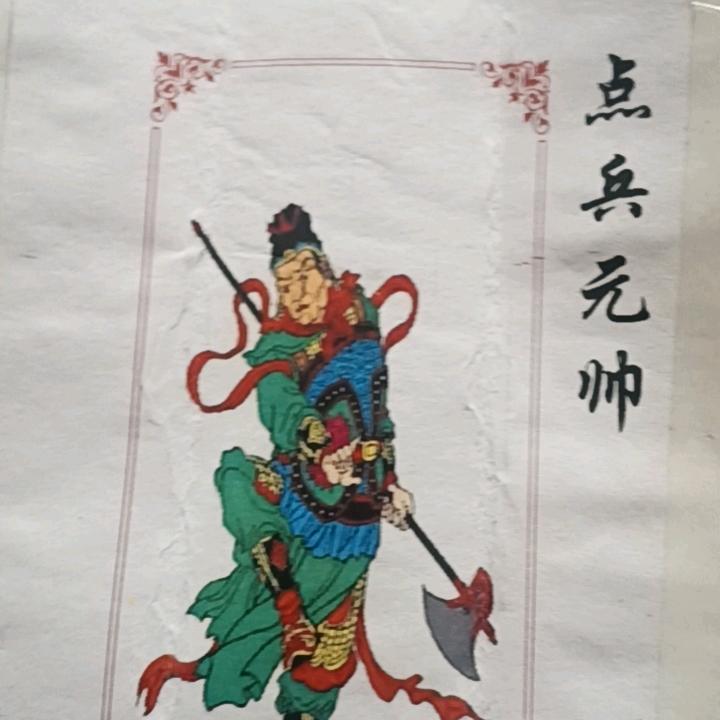 点兵元帅